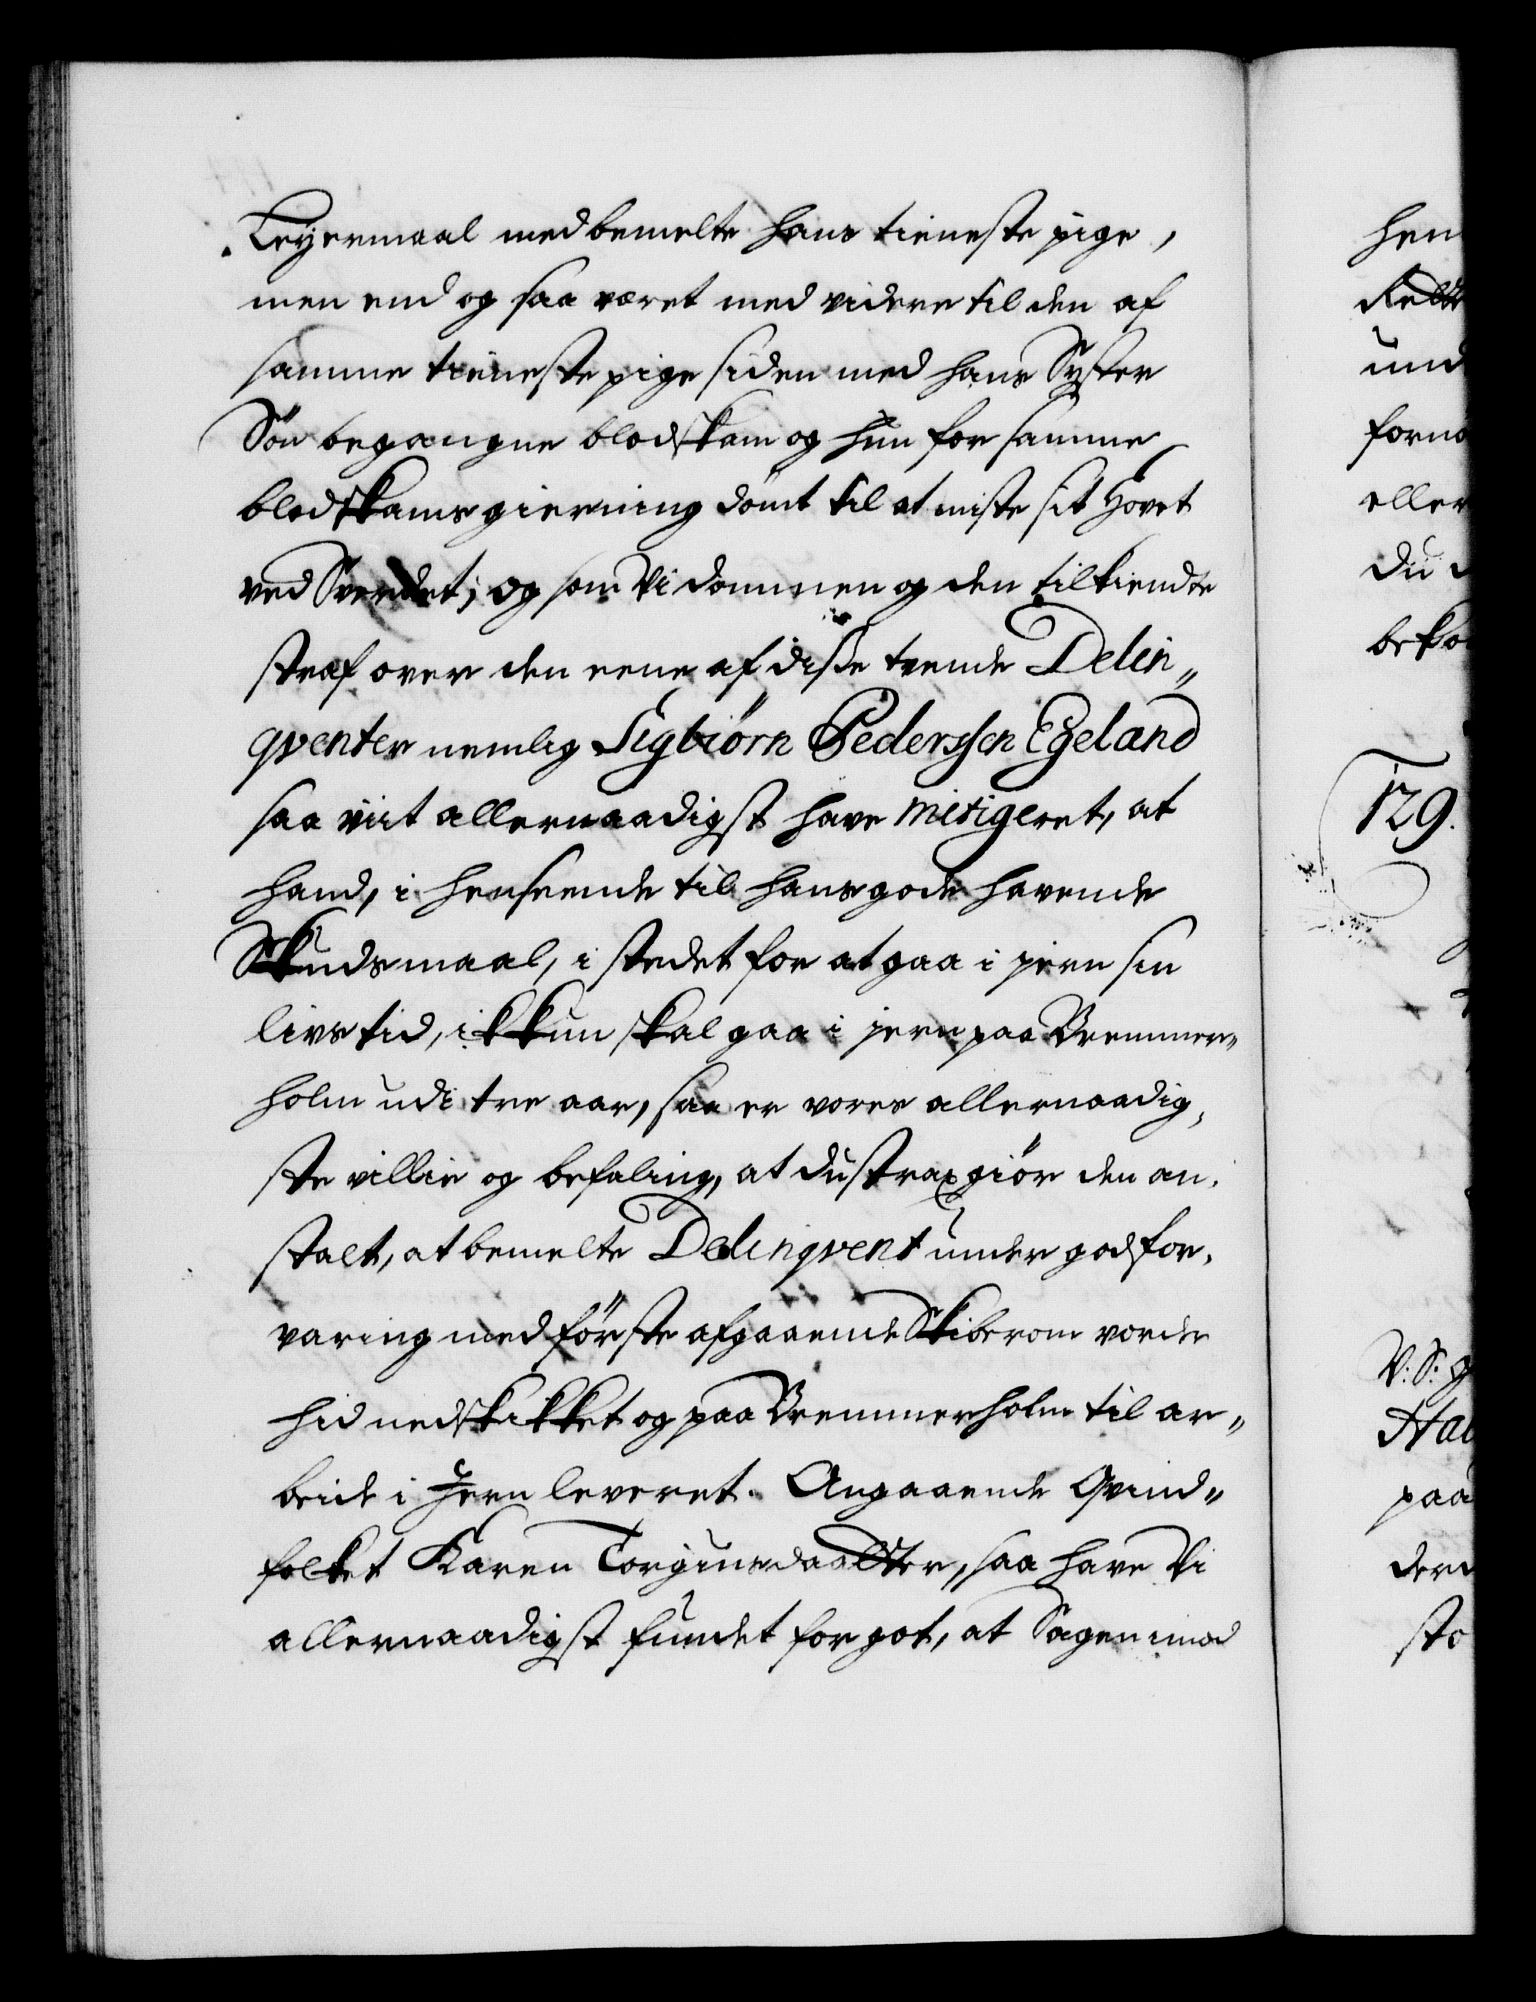 Leyermaal med bemelte hans tieneste pige,
men end og saa været med videre til den af
samme tieneste pige siden med hans Syster
Søn begangne blodskam og hun for samme
blodskams gierning dømt til at miste sit Hovet
ved Sverdet; og som Vi dommen og den tilkiendte
straf over den eene af disse tvende Delin„
qventer nemlig Sigbiørn Pederssen Egeland
saa vit allernaadigst have mitigeret, at
hand, i henseende til hans gode havende
Skudsmaal, i stedet for at gaa i jern sin
livs tid, ikkun skal gaa i jern paa Bremmer„
holm udi tre aar, saa er vores allernaadig,
ste villie og befaling, at du strax giør den an,
stalt, at bemelte Delinqvent under god for,
varing med første afgaaende Skiberom vorder
hid nedskikket og paa Bremmerholm til ar„
beide i Jern leveret. Angaaende Qvind„
folket Karen Torgiusdaatter, saa have Vi
allernaadigst fundet for got, at Sagen imod
hen
und
forno
eller
du
129.
V: S: g
paa
sto